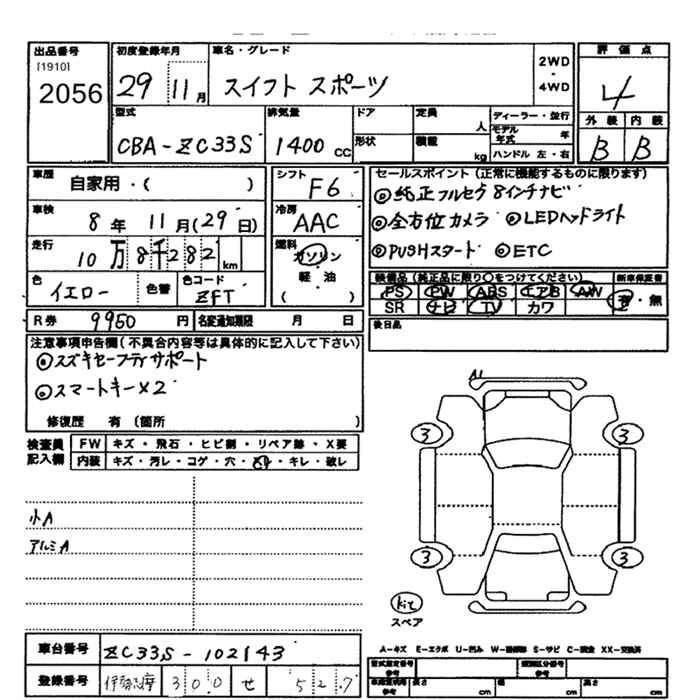 出品番号
[1910]
2056
初度登録年月
29 11月
車名・グレード
スイフト スポーツ
2WD・4WD
評価点
4
型式
CBA-ZC33S
排気量
1400 CC
ドア
形状
定員 人
積載 kg
ディーラー・並行
モデル年式 年
ハンドル 左・右
外装 内装
B B
車歴 自家用・( )
車検 8年11月(29日)
走行 10万8千282km
色 イエロー 色替 色コード ZFT
シフト F6
冷房 AAC
燃料 ガソリン
軽・油
( )
セールスポイント (正常に機能するものに限ります)
◎純正フルセグ8インチナビ
◎全方位カメラ ◎LEDヘッドライト
◎PUSHスタート ◎ETC
装備品(純正品に限り○をつけてください) 新車保証書
PS PW ABS エアB AW
SR ナビ TV カワ
有・無
R券 9950円 名変通知期限 月 日
後日品
注意事項申告欄(不具合内容等は具体的に記入して下さい)
◎スズキセーフティサポート
◎スマートキー×2
修復歴 有(箇所 )
検査員記入欄
FW キズ・飛石・ヒビ割・リペア跡・X要
内装 キズ・汚レ・コゲ・穴・スレ・キレ・破レ
小A
アルミA
A1
3 3
3 3
kit
スペア
車台番号 ZC33S-102143
登録番号 伊勢志摩 300 せ 527
A-キズ E-エクボ U-凹み W-補修跡 S-サビ C-腐食 XX-交換済
型式指定番号 参考
類別区分番号 参考
車庫証明用 参考 長さ cm 幅 cm 高さ cm